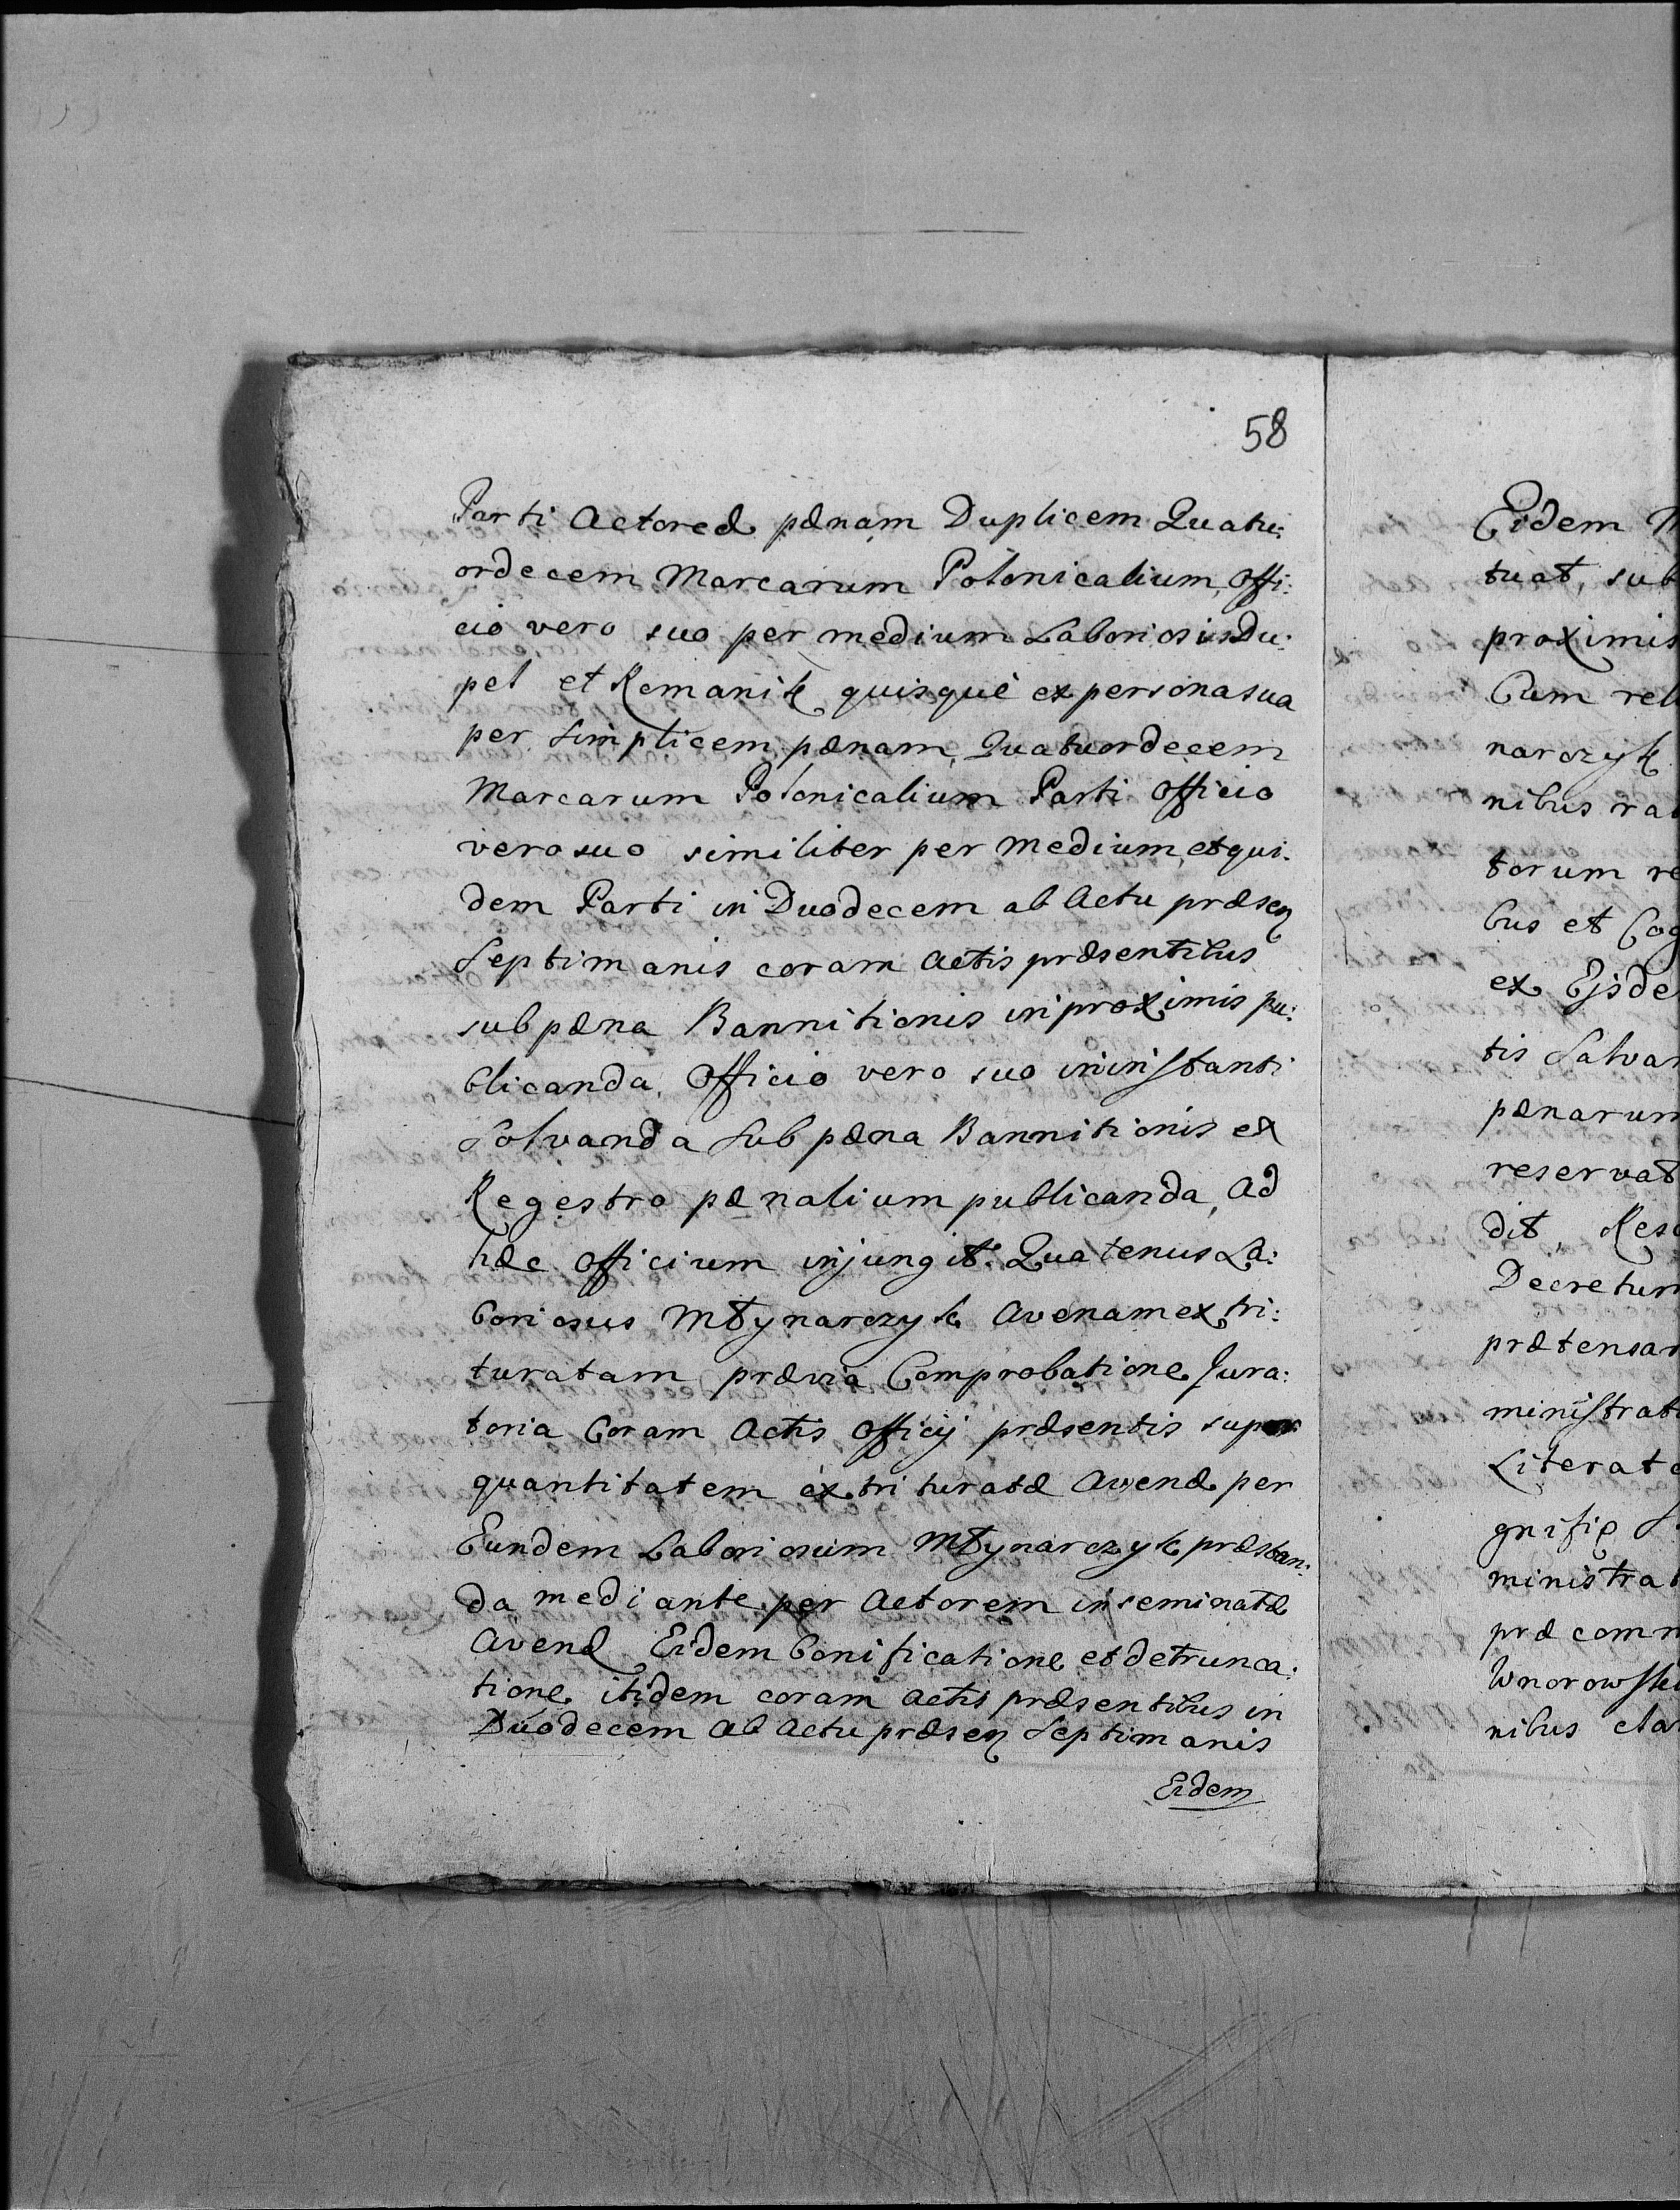 58
Parti Actoreæ pænam Duplicem Quatu:
ordecem Marcarum Polonicalium, Offi:
cio vero suo per medium Laboriosis Du:
pel et Romanik quisque ex persona sua
per simplicem pænam Quatuordecem
Marcarum Polonicalium Parti Officio
vero suo similiter per medium, et qui:
dem Parti in Duodecem ab Actu præsen
Septimanis coram Actis præsentibus
sub pæna Bannitionis in proximis pu:
blicanda, Officio vero suo in instanti
Solvanda sub pæna Bannitionis ex
Regestro pænalium publicanda, Ad
hæc Officium injungit Quatenus La:
boriosus Młynarczyk Avenam extri:
turatam prævia Comprobatione Jura:
toria Coram Actis Officij præsentis super
quantitatem extrituratæ Avenæ per
Eundem Laboriosum Młynarczyk præstan:
da mediante per Actorem inseminatæ
Avenæ Eidem bonificatione et detrunca:
tione itidem coram Actis præsentibus in
Duodecem ab Actu præsen Septimanis
Eidem
Eidem
tuat, sub
proximis
Cum
narczyk
nibus
torum
bus et
ex
tis
pænarum
reservat
dit,
Decretum
ministrat
præ
nibus